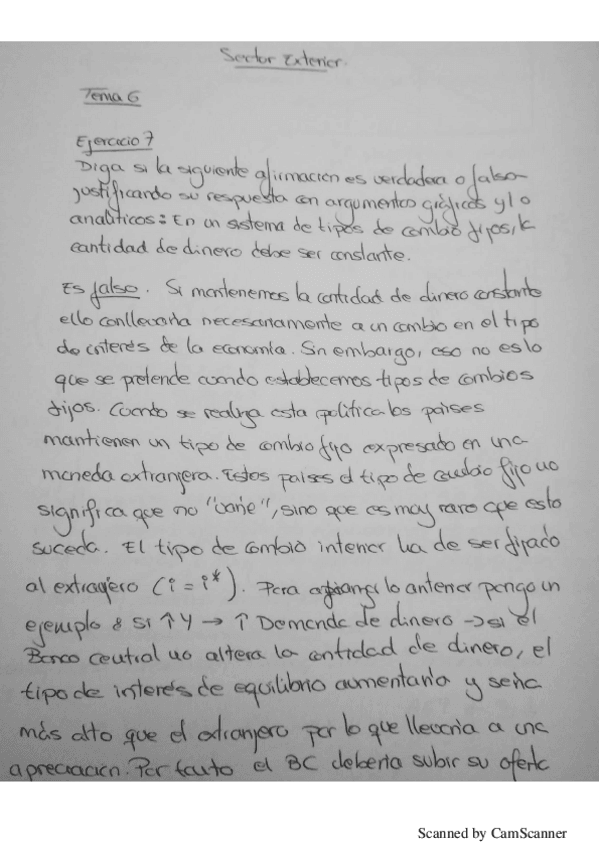 Sector Exterior.
Tema 6
Ejercicio 7
Diga si la siguiente afirmación es verdadera o falso
justificando su respuesta con argumentos gráficos y/o
analíticos: En un sistema de tipos de cambio fijos, la
cantidad de dinero debe ser constante.
Es falso. Si mantenemos la cantidad de dinero constante
ello conllevaría necesariamente a un cambio en el tipo
de interés de la economía. Sin embargo, eso no es lo
que se pretende cuando establecemos tipos de cambios
fijos. Cuando se realiza esta política los países
mantienen un tipo de cambio fijo expresado en una
moneda extranjera. Estos países el tipo de cambio fijo no
significa que no "varíe", sino que es muy raro que esto
suceda. El tipo de cambio interior ha de ser fijado
al extranjero (i = i*). Para lo anterior pongo un
ejemplo: Si ↑Y → ↑ Demanda de dinero → si el
Banco central no altera la cantidad de dinero, el
tipo de interés de equilibrio aumentaría y sería
más alto que el extranjero por lo que llevaría a una
apreciación. Por tanto el BC debería subir su oferta
Scanned by CamScanner